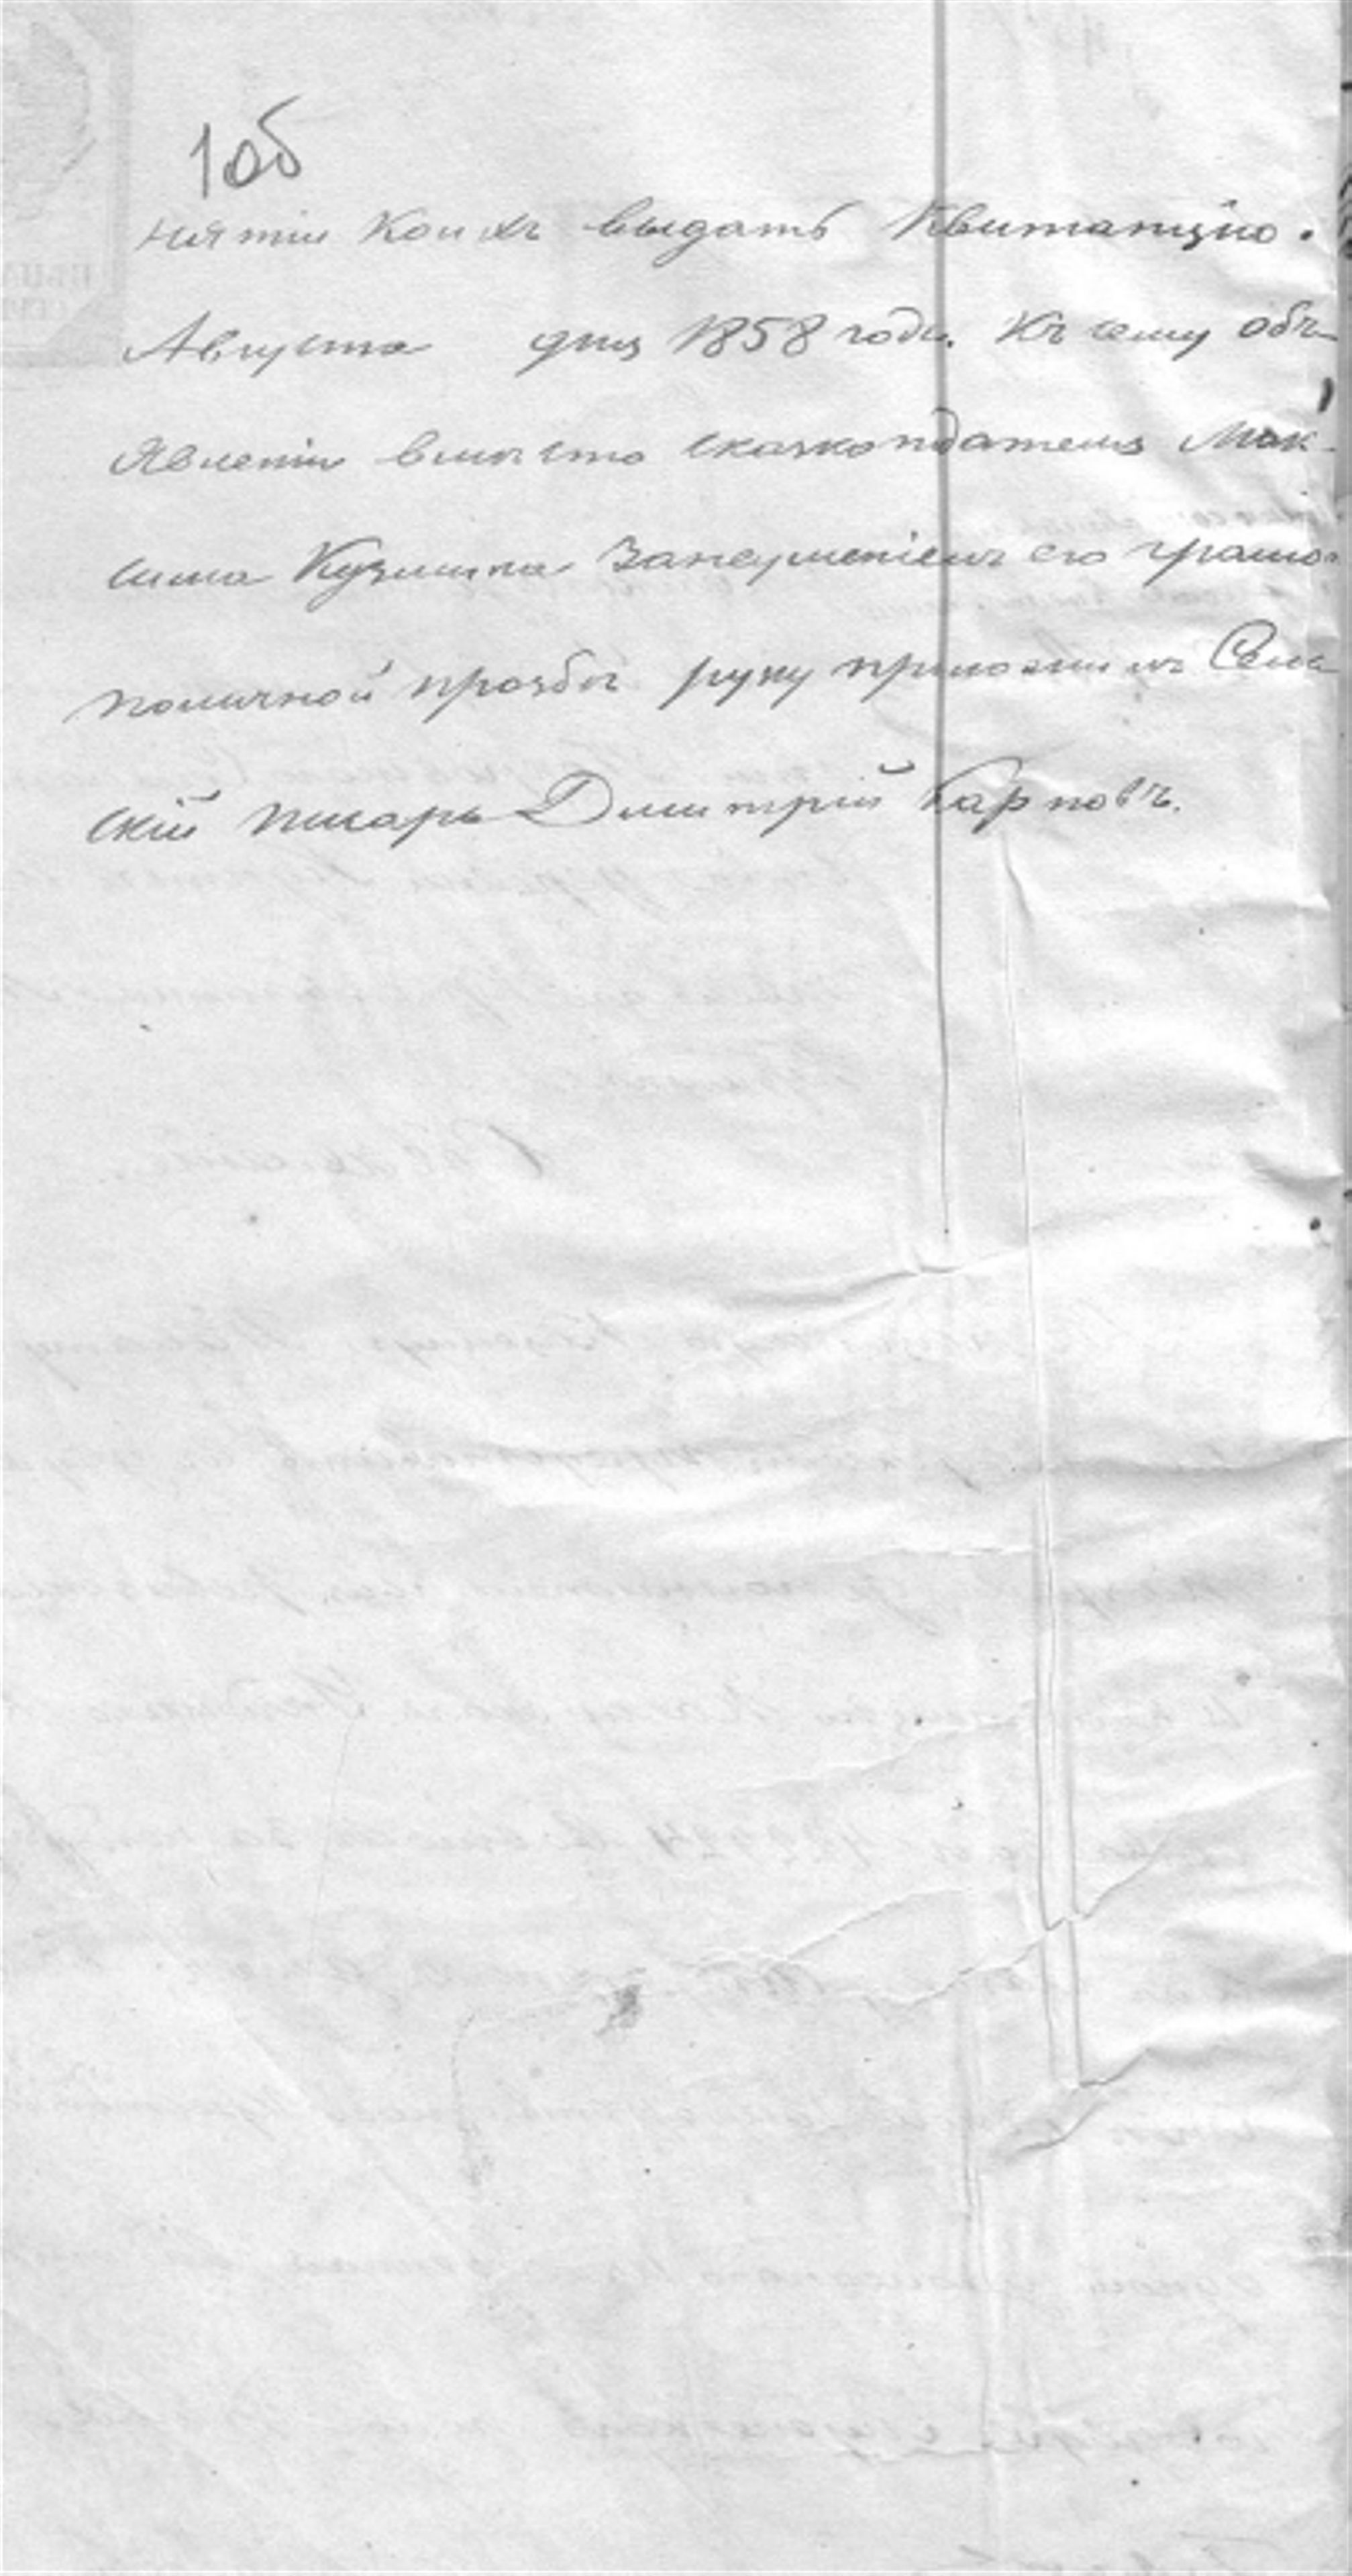 1об
нятіи коихъ выдать Квитанцію.
Августа дня 1858 года. Къ сему объ-
явленію вмѣсто сказкоподателя Мак-
сима Кузмина Занеумѣніемъ его грамоте
поличной прозбѣ руку приложилъ Сель
скій писарь Димитрій Карповъ.